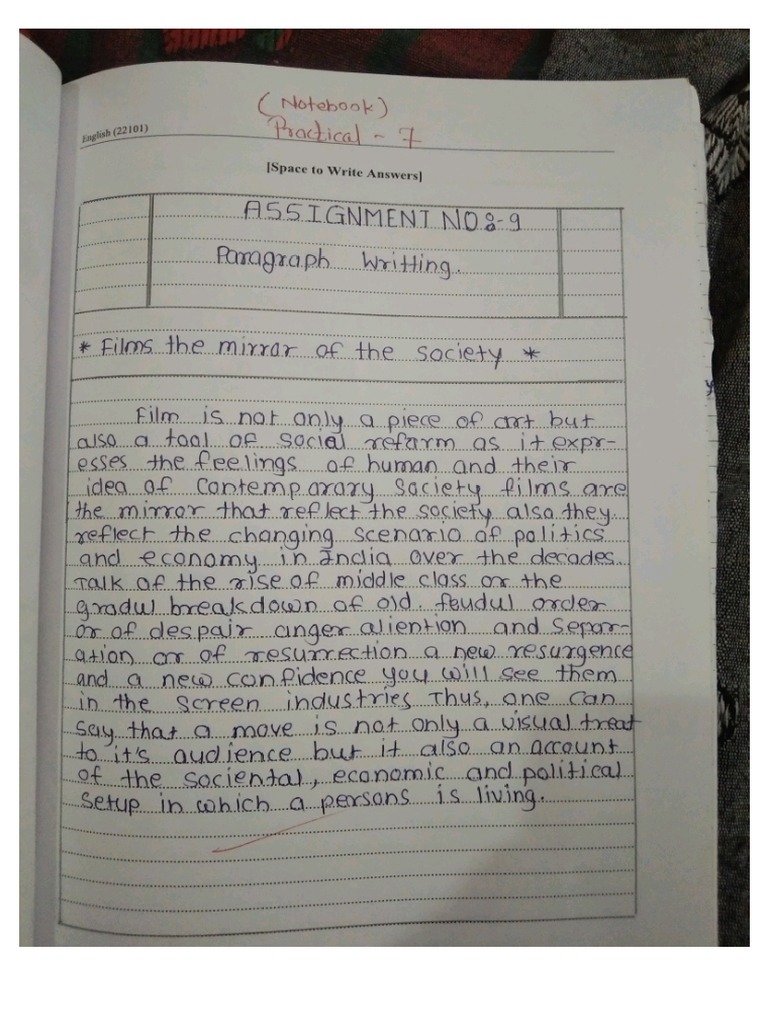 (Notebook)
English (22101)
Practical - 7
[Space to Write Answers]
ASSIGNMENT NO:-9
Paragraph Writting.
* Films the mirror of the society *
Film is not only a piece of art but
also a tool of social reform as it expr-
esses the feelings of human and their
idea of contemporary society films are
the mirror that reflect the society also they
reflect the changing scenario of politics
and economy in India over the decades.
Talk of the rise of middle class or the
gradul breakdown of old. feudul order
or of despair anger aliention and separ-
ation or of resurrection a new resurgence
and a new confidence you will see them
in the screen industries Thus, one can
say that a move is not only a visual treat
to it's audience but it also an account
of the sociental, economic and political
setup in which a persons is living.